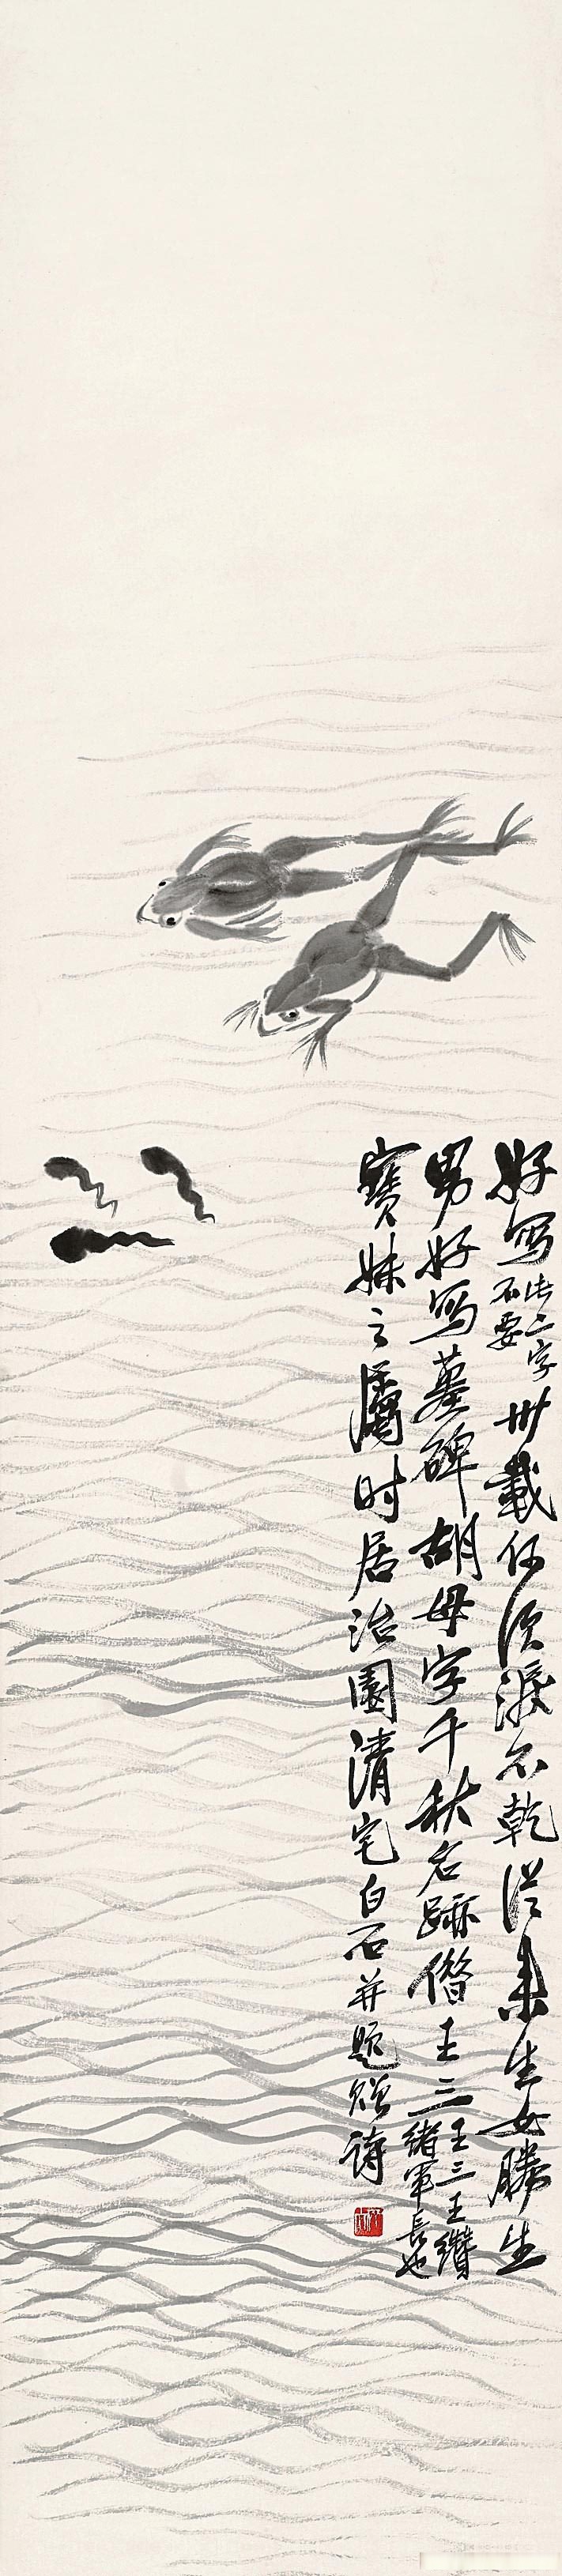 好写此二字不要卅载仍须泪不乾从来生女胜生
男好写墓碑胡母字千秋名迹僭王三王三王缵绪军长也
宝妹之属时居治园清宅白石并题赠诗